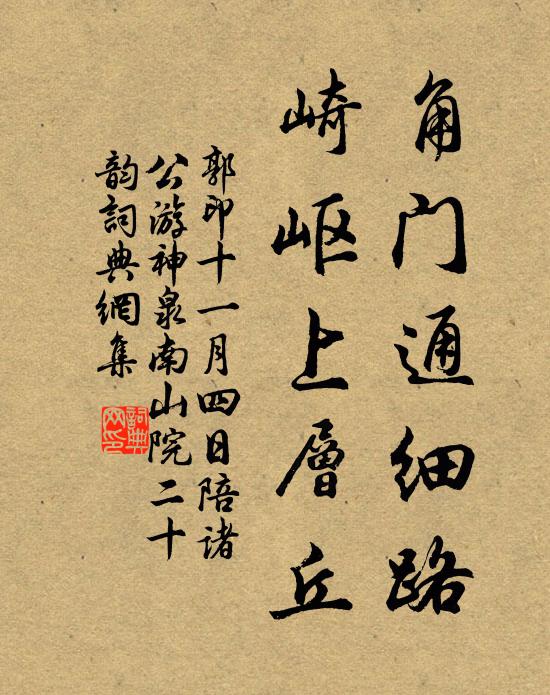 角门通细路
崎岖上层丘
郭印十一月四日陪诸
公游神泉南山院二十
韵词典网集
詞典
网印